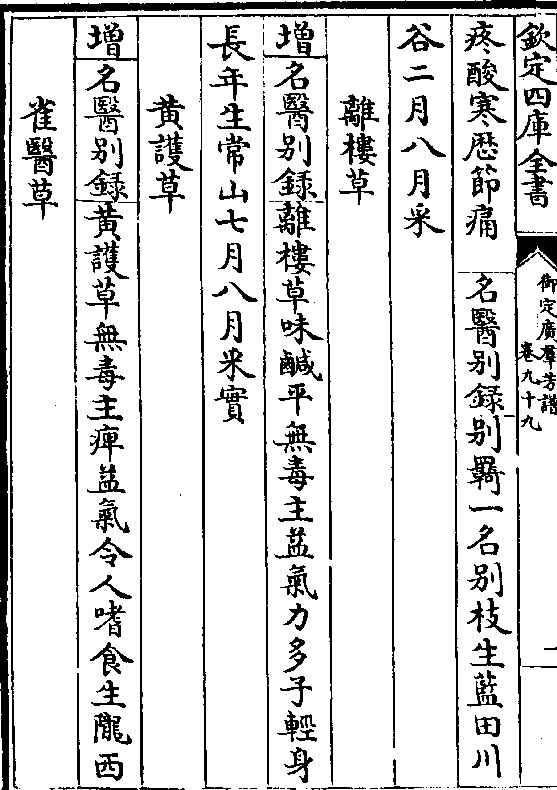 欽定四庫全書
御定廣羣芳譜
卷九十九
一
疼酸寒歴節痛　名醫别録别羇一名别枝生藍田川
谷二月八月采
離樓草
增名醫别録離樓草味鹹平無毒主益氣力多子輕身
長年生常山七月八月采實
黄護草
增名醫别録黄護草無毒主痺益氣令人嗜食生隴西
雀醫草